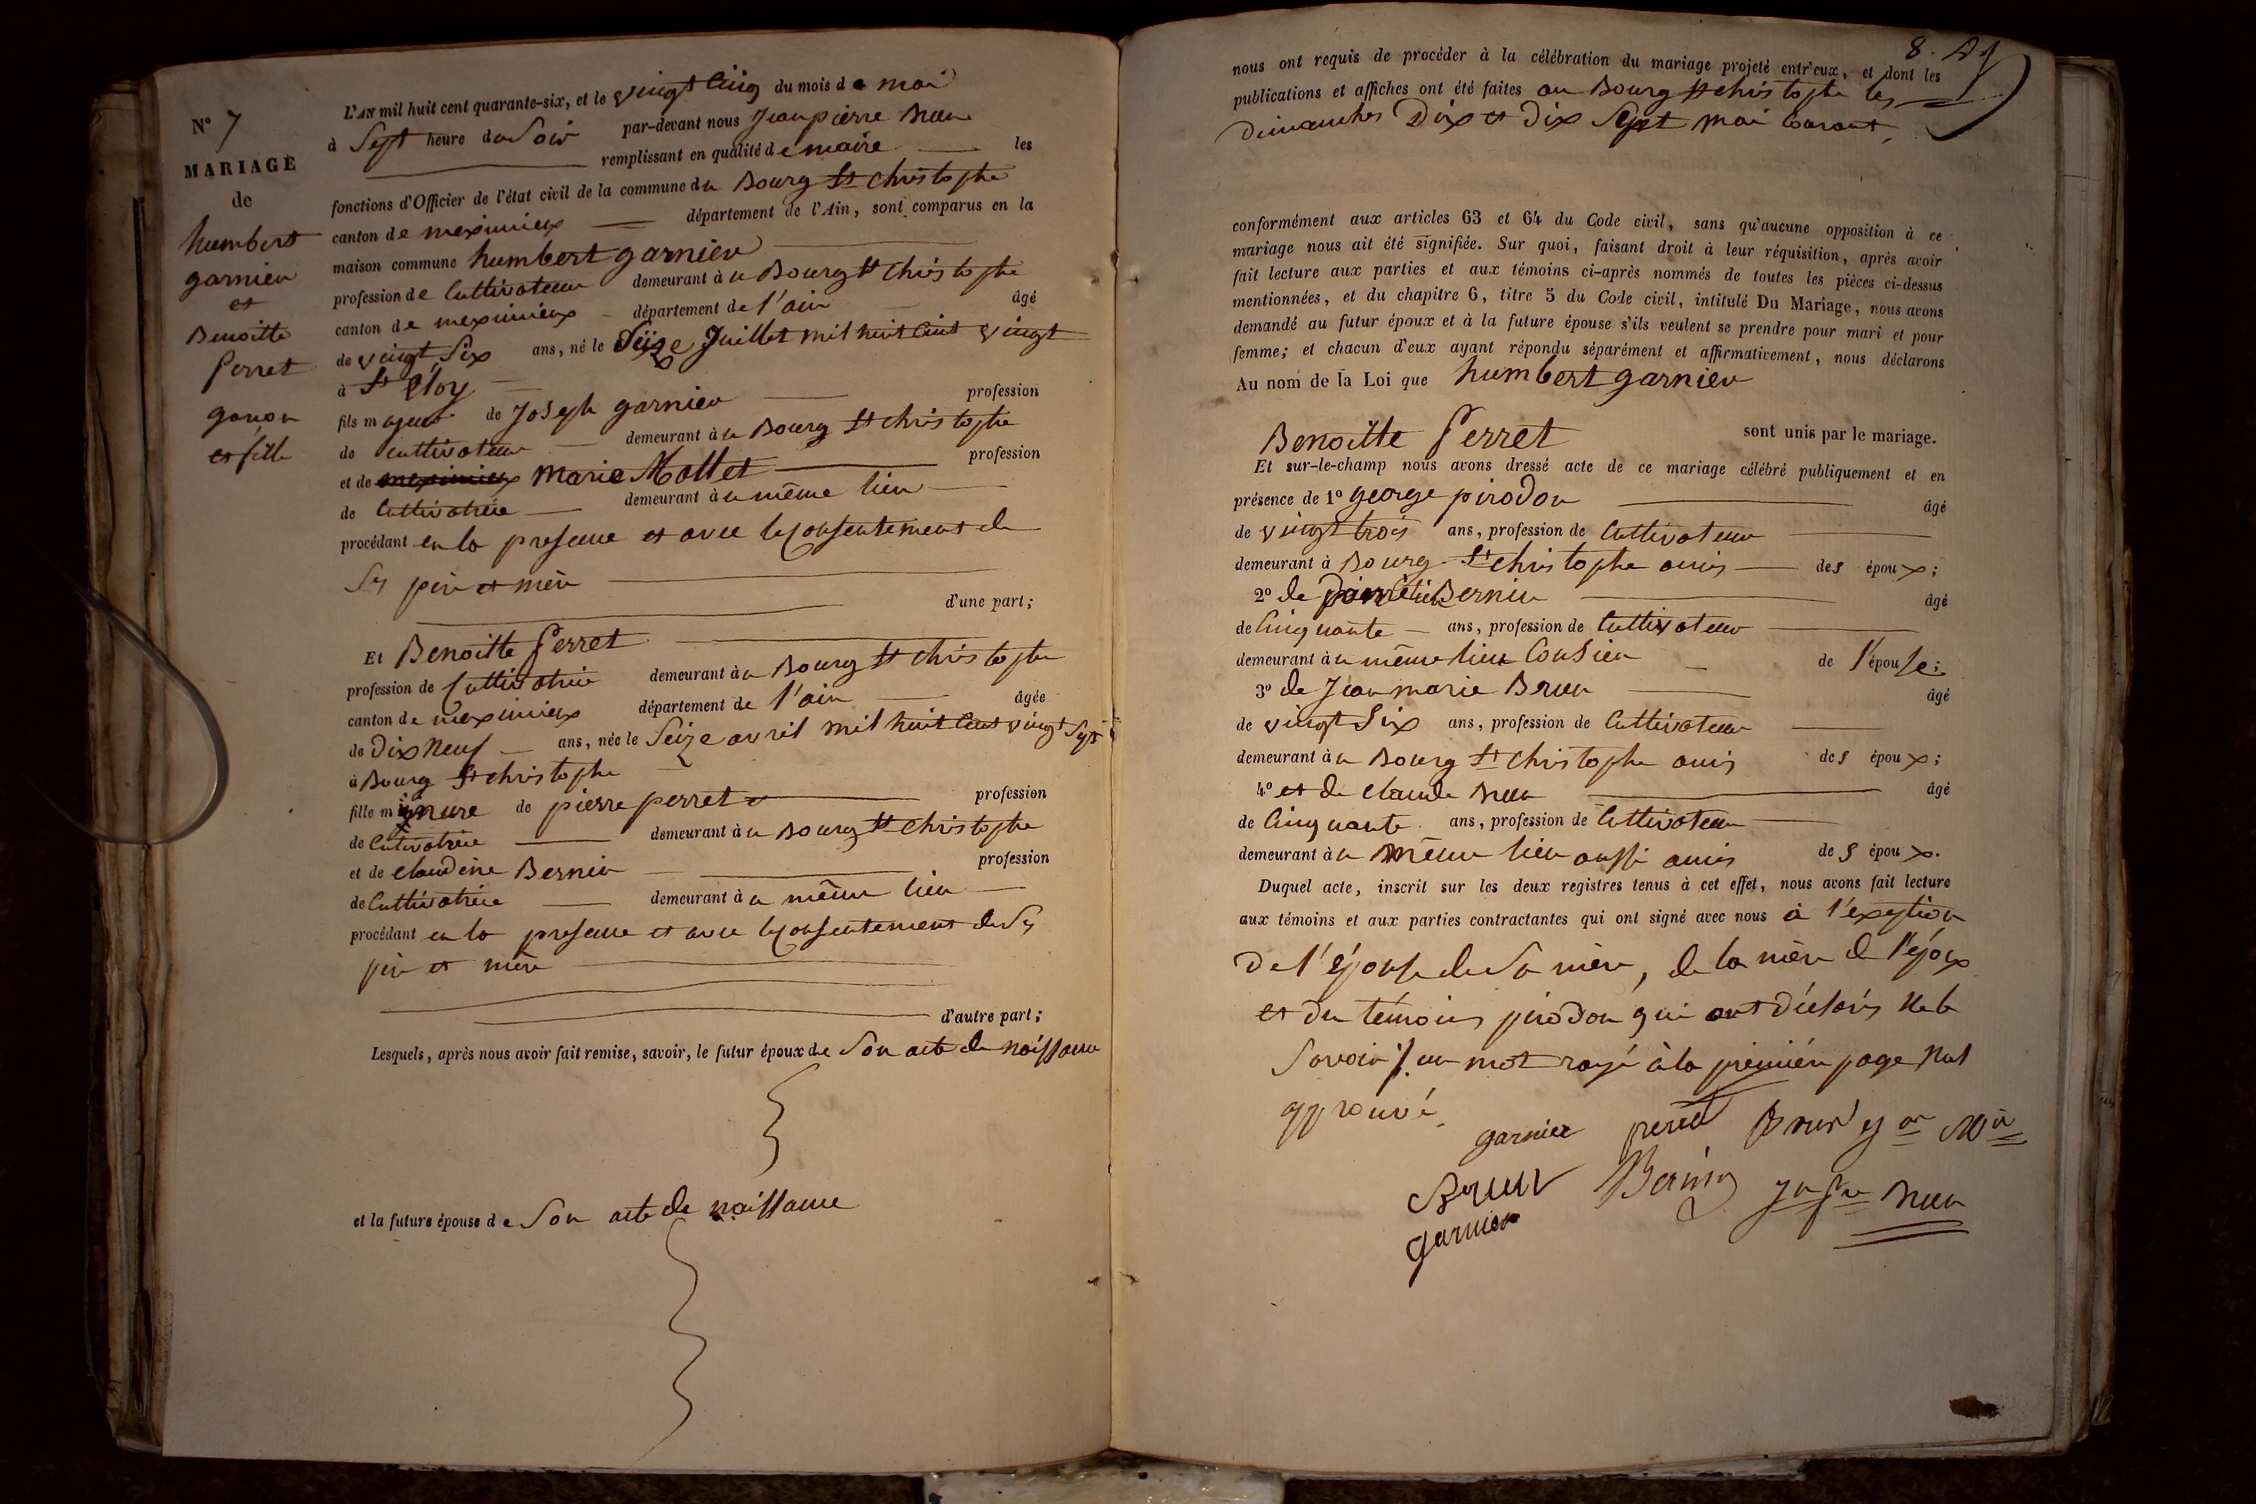 N° 7
MARIAGE
de
humbert
garnier
et
Benoitte
Perret
garcon
et fille
L'AN mil huit cent quarante-six, et le vingt Cinq du mois de mai
à Sept heure du Soir par-devant nous Jean pierre Brun
remplissant en qualité de maire les
fonctions d'Officier de l'état civil de la commune du Bourg St christophe
canton de meximieux département de l'Ain, sont comparus en la
maison commune humbert garnier
profession de Cultivateur demeurant à u Bourg St christophe
canton de meximieux département de l'ain âgé
de vingt Six ans, né le Seize Juillet mil huit Cent vingt
à St Eloy
fils majeur de Joseph garnier profession
de cultivateur demeurant à u Bourg St christophe
et de meximieux marie Mollet profession
de Cultivatrice demeurant à u même lieu
procédant en la presence et avec le Consentement de
Ses père et mère
d'une part;
Et Benoitte Perret
profession de Cultivatrice demeurant à u Bourg St christophe
canton de meximieux département de l'ain âgée
de Dix Neuf ans, née le Seize avril mil huit Cent vingt Sept
à Bourg St christophe
fille mineure de pierre perret profession
de Cutivatrice demeurant à u Bourg St christophe
et de claudine Bernin profession
de Cultivatrice demeurant à u même lieu
procédant en la presence et avec le Consentement de Ses
père et mère
d'autre part;
Lesquels, après nous avoir fait remise, savoir, le futur époux de Son acte de naissance
et la future épouse de Son acte de naissance
8.
nous ont requis de procéder à la célébration du mariage projeté entr'eux, et dont les
publications et affiches ont été faites au Bourg St christophe les
Dimanches Dix et Dix Sept mai Courant,
conformément aux articles 63 et 64 du Code civil, sans qu'aucune opposition à ce
mariage nous ait été signifiée. Sur quoi, faisant droit à leur réquisition, après avoir
fait lecture aux parties et aux témoins ci-après nommés de toutes les pièces ci-dessus
mentionnées, et du chapitre 6, titre 5 du Code civil, intitulé Du Mariage, nous avons
demandé au futur époux et à la future épouse s'ils veulent se prendre pour mari et pour
femme; et chacun d'eux ayant répondu séparément et affirmativement, nous déclarons
Au nom de la Loi que humbert garnier
Benoitte Perret sont unis par le mariage.
Et sur-le-champ nous avons dressé acte de ce mariage célébré publiquement et en
présence de 1° george pirodon âgé
de vingt trois ans, profession de Cultivateur
demeurant à Bourg St christophe amis des époux;
2° de Bernin âgé
de Cinquante ans, profession de Cultivateur
demeurant à u même lieu Cousin de l'épouse;
3° de Jean marie Brun âgé
de vingt Six ans, profession de Cultivateur
demeurant à u Bourg St christophe amis des époux;
4° et de claude Brun âgé
de Cinquante ans, profession de Cultivateur
demeurant à u même lieu aussi amis des époux.
Duquel acte, inscrit sur les deux registres tenus à cet effet, nous avons fait lecture
aux témoins et aux parties contractantes qui ont signé avec nous à l'exeption
De l'épouse de Sa mère, de la mère de l'époux
et du témoins pirodon qui ont déclarés ne le
Savoir /. un mot rayé à la premiére page Nul
approuvé.
garnier perret Brun
Brun Bernin Brun
garnier